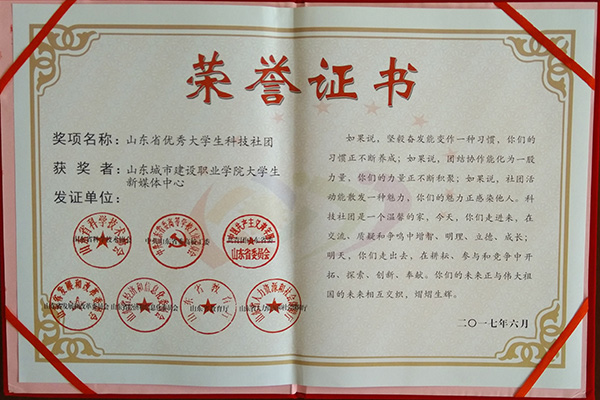 荣誉证书
奖项名称：山东省优秀大学生科技社团
获奖者：山东城市建设职业学院大学生
新媒体中心
发证单位：
山东省科学技术协会
山东省委员会
山东省教育厅
如果说，坚毅奋发能变作一种习惯，你们的
习惯正不断养成；如果说，团结协作能化为一股
力量，你们的力量正不断积聚；如果说，社团活
动能散发一种魅力，你们的魅力正感染他人。科
技社团是一个温馨的家，今天，你们走进来，在
交流、质疑和争鸣中增智、明理、立德、成长；
明天，你们走出去，在耕耘、参与和竞争中开
拓、探索、创新、奉献。你们的未来正与伟大祖
国的未来相互交织，熠熠生辉。
二〇一七年六月